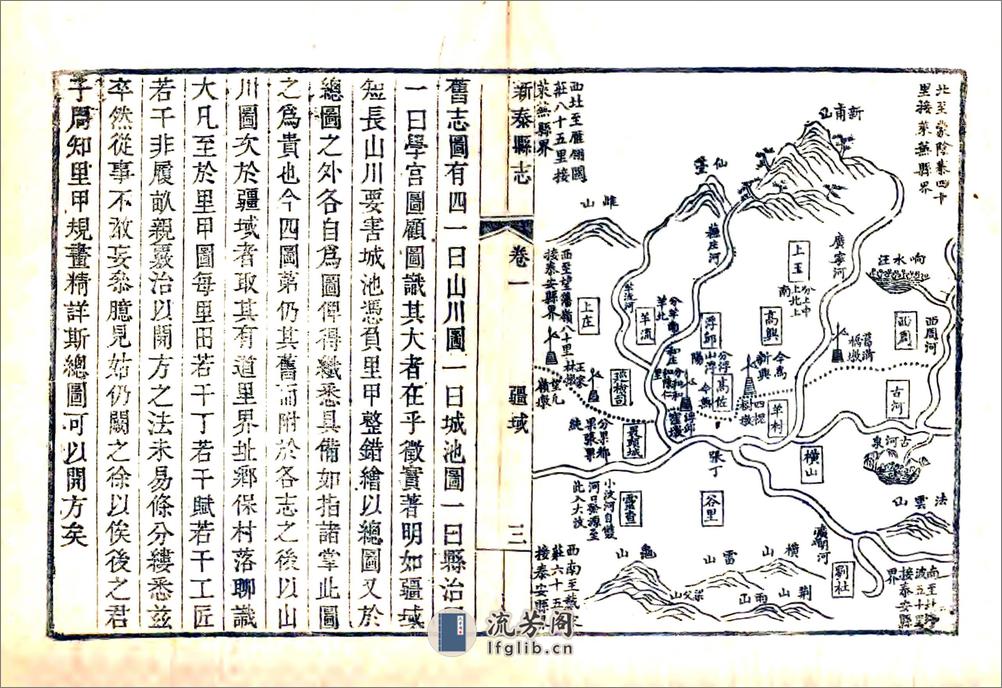 北至蒙陰寨四十
里接萊蕪縣界
新甫山
仙臺
西北至雁翎關
莊八十五里接
萊蕪縣界
雎山
廣寧河
响水汪
上玉
分上中
上北
南
西周
西周河
高興
羊流
上庄
浮邱
古河
高佐
羊村
西至望藩嶺八十里
接泰安縣界
果都城
橫山
張丁
谷里
靈查
古河泉
法雲山
劉杜
小汶河自雙
河口發源至
此入大汶
西南至
莊六十五
接泰安縣
龜山
雷山
橫山
荆山
雨山
新泰縣志
卷一
疆域
三
舊志圖有四一曰山川圖一曰城池圖一曰縣治圖
一曰學宮圖顧圖識其大者在乎徵實著明如疆域
短長山川要害城池憑負里甲整錯繪以總圖又於
總圖之外各自爲圖俾得纖悉具備如指諸掌此圖
之爲貴也今四圖第仍其舊而附於各志之後以山
川圖次於疆域者取其有道里界址鄉保村落聊識
大凡至於里甲圖每里田若干丁若干賦若干工匠
若干非履畝親覈治以開方之法未易條分縷悉兹
卒然從事不敢妄參臆見姑仍闕之徐以俟後之君
子周知里甲規畫精詳斯總圖可以開方矣
流芳阁
lfglib.cn